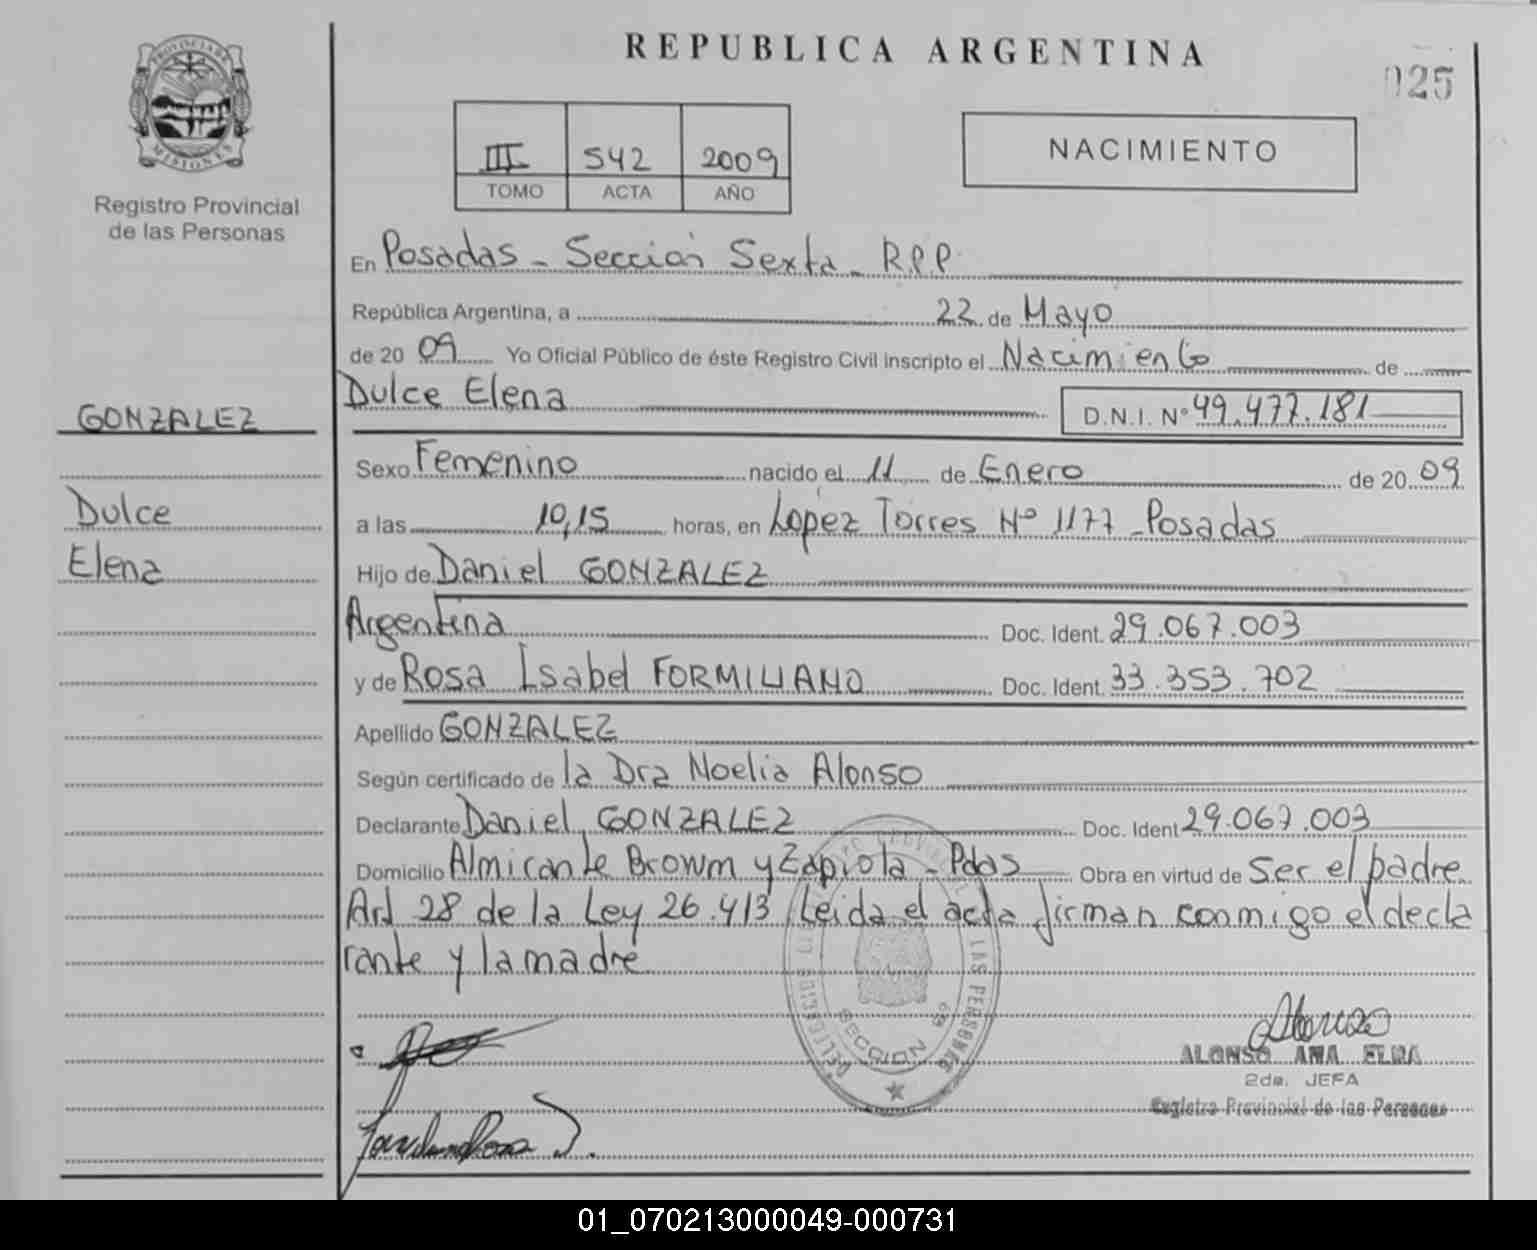 PROVINCIA DE
MISIONES
Registro Provincial
de las Personas
REPUBLICA ARGENTINA
025
III 542 2009
TOMO ACTA AÑO
NACIMIENTO
En Posadas - Sección Sexta - R.P.P.
República Argentina, a 22 de Mayo
de 20 09 Yo Oficial Público de éste Registro Civil inscripto el Nacimiento de
Dulce Elena D.N.I. Nº 49.477.181
GONZALEZ
Sexo Femenino nacido el 11 de Enero de 20 09
Dulce
a las 10,15 horas, en Lopez Torres Nº 1177 - Posadas
Elena
Hijo de Daniel GONZALEZ
Argentina Doc. Ident. 29.067.003
y de Rosa Isabel FORMILIANO Doc. Ident. 33.353.702
Apellido GONZALEZ
Según certificado de la Dra Noelia Alonso
Declarante Daniel GONZALEZ Doc. Ident 29.067.003
Domicilio Almirante Browm y Zapiola - Pdas Obra en virtud de Ser el padre
Art 28 de la Ley 26.413 Leida el acta firman conmigo el decla
rante y la madre
SECCION 6º
LAS PERSONAS
ALONSO ANA ELBA
2da. JEFA
Registro Provincial de las Personas
01_070213000049-000731